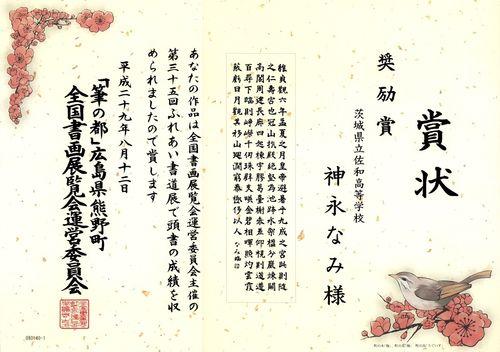 賞状
奨励賞
茨城県立佐和高等学校
神永なみ様
維貞観六年孟夏之月皇帝避暑乎九成之宮此則随
之仁壽宮也冠山抗殿絶壑為池跨水架楹分巌竦闕
高閣周建長廊四起棟宇膠葛臺榭参差仰視則迢遰
百尋下臨則崢嶸千仞珠璧交暎金碧相暉照灼雲霞
蔽虧日月觀其移山廻澗窮泰極侈以人 なみ臨
あなたの作品は全国書画展覧会運営委員会主催の
第三十五回ふれあい書道展で頭書の成績を収
められましたので賞します
平成二十九年八月十二日
「筆の都」広島県熊野町
全国書画展覧会運営委員会